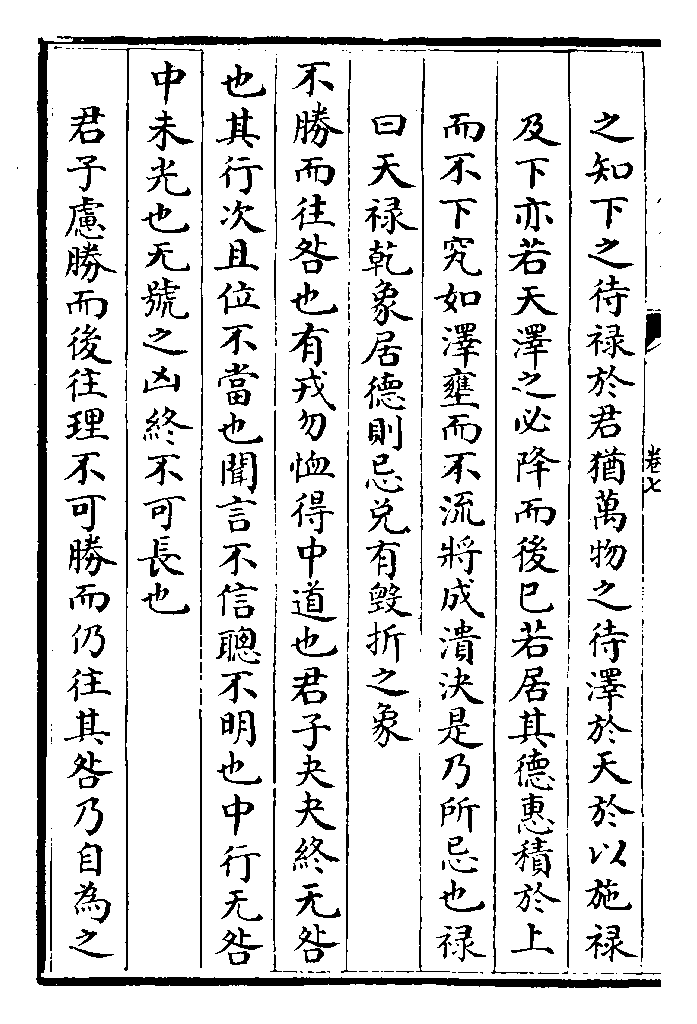 卷七
之知下之待禄於君猶萬物之待澤於天於以施禄
及下亦若天澤之必降而後已若居其德惠積於上
而不下究如澤壅而不流將成潰決是乃所忌也禄
曰天禄乾象居德則忌兑有毁折之象
不勝而往咎也有戎勿恤得中道也君子夬夬終无咎
也其行次且位不當也聞言不信聰不明也中行无咎
中未光也无號之凶終不可長也
君子慮勝而後往理不可勝而仍往其咎乃自為之